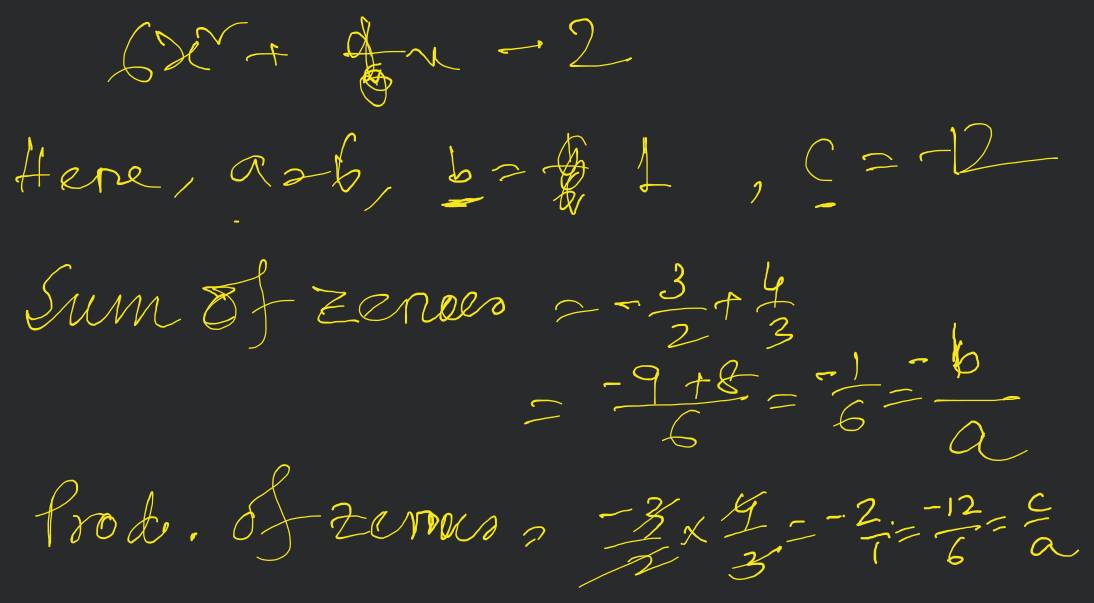 6x² + x - 2
Here, a=6, b= 1 , c = -12
Sum of zeroes = - 3/2 + 4/3
= -9 +8/6 = -1/6 = -b/a
Prod. of zeroes = -3/2 × 4/3 = -2/1 = -12/6 = c/a